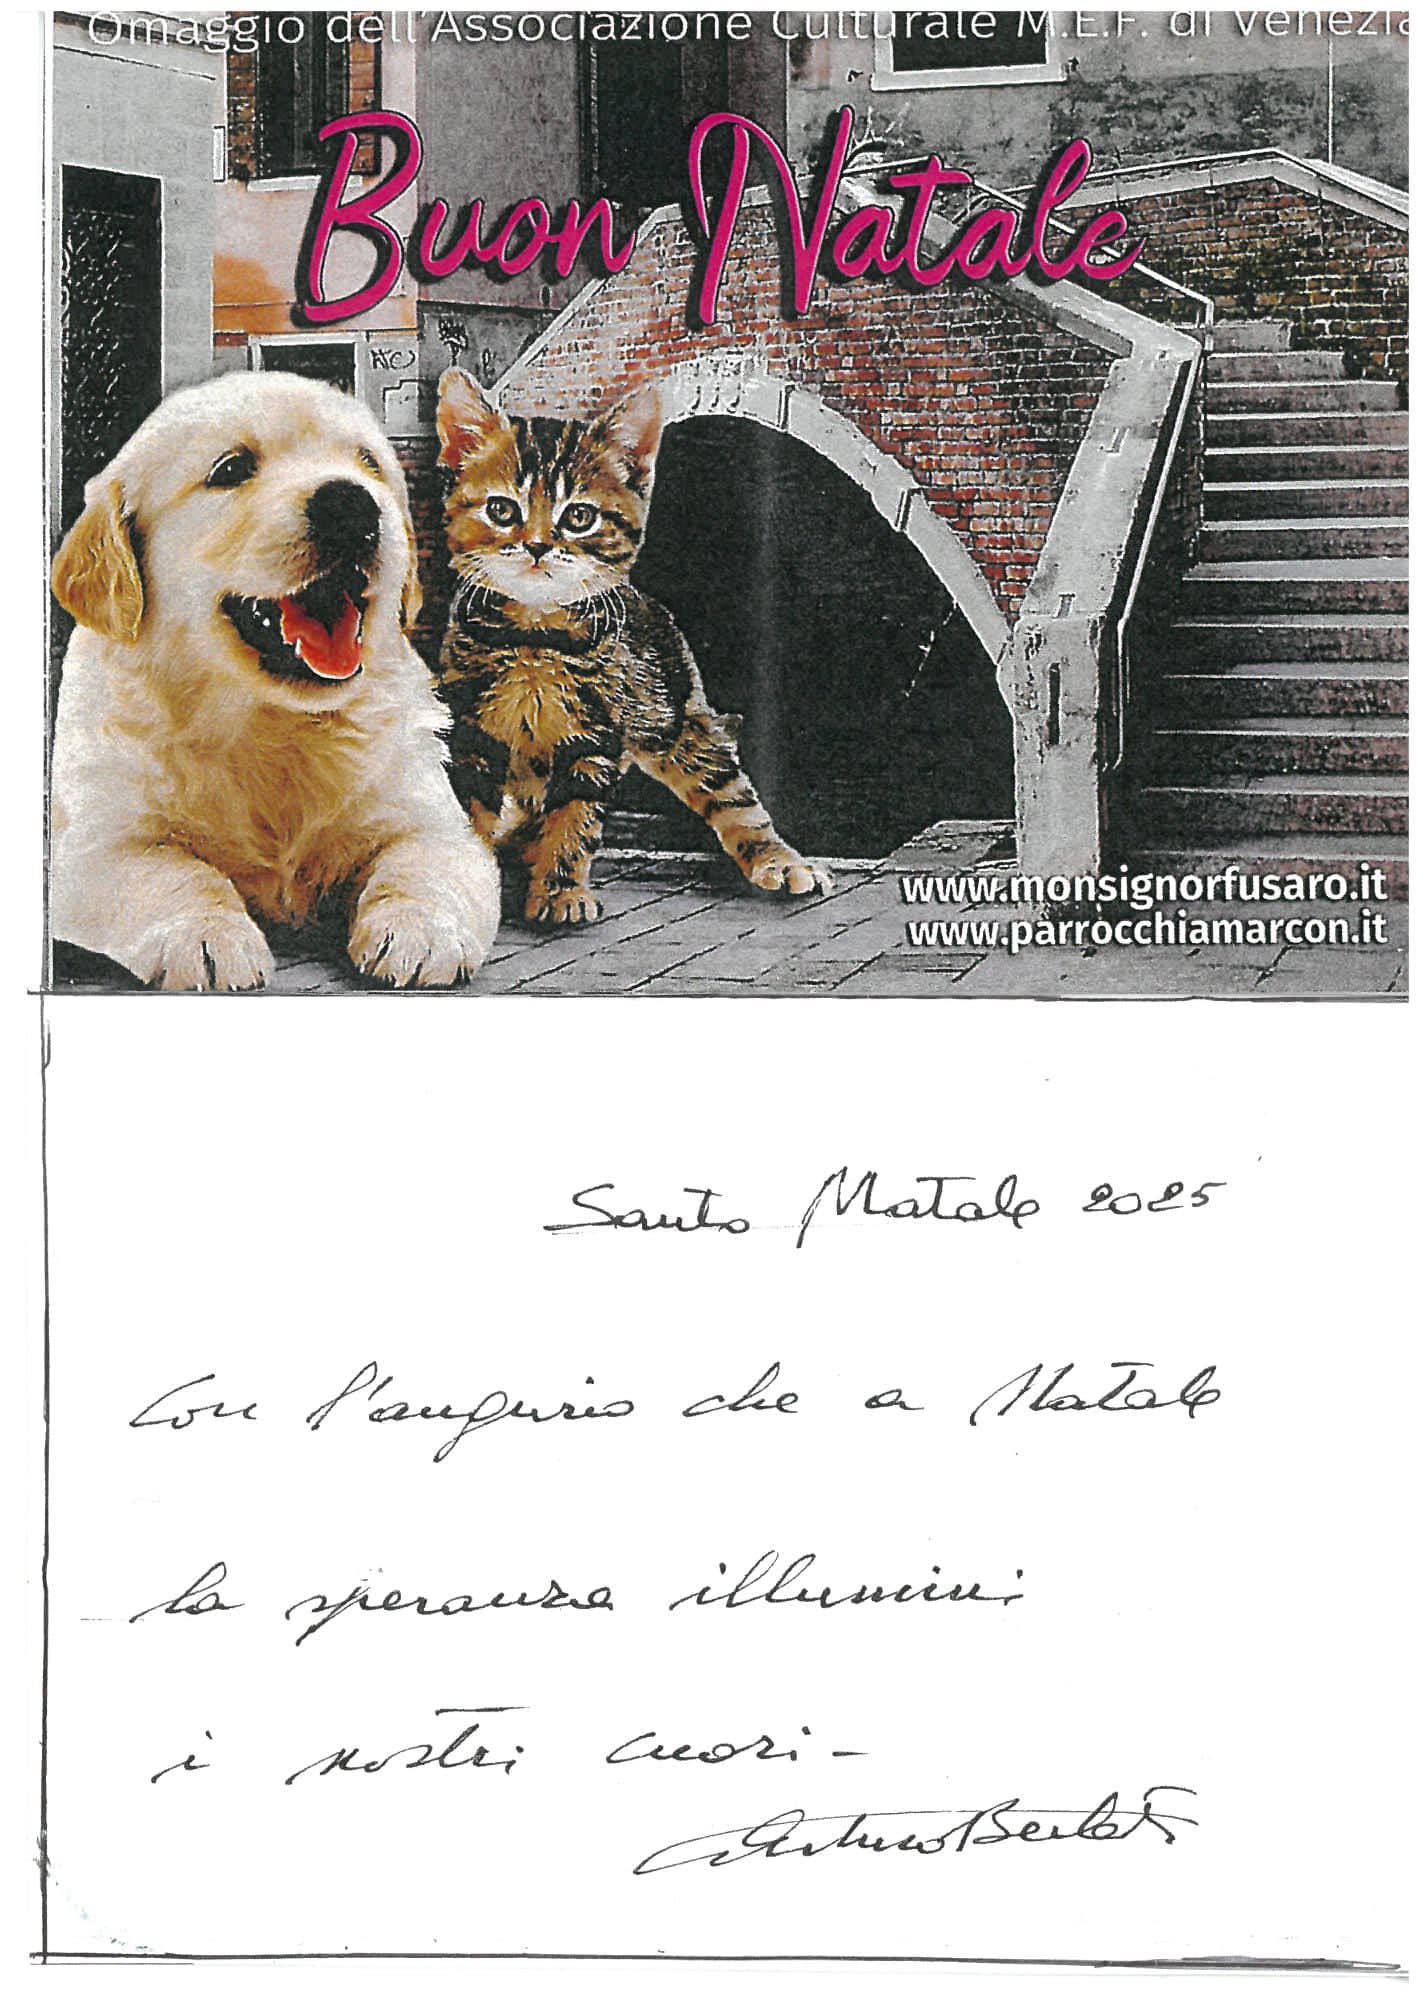 Omaggio dell'Associazione Culturale M.E.F. di Venezia
Buon Natale
www.monsignorfusaro.it
www.parrocchiamarcon.it
Santo Natale 2025
Con l'augurio che a Natale
la speranza illumini
i nostri cuori-
Arturo